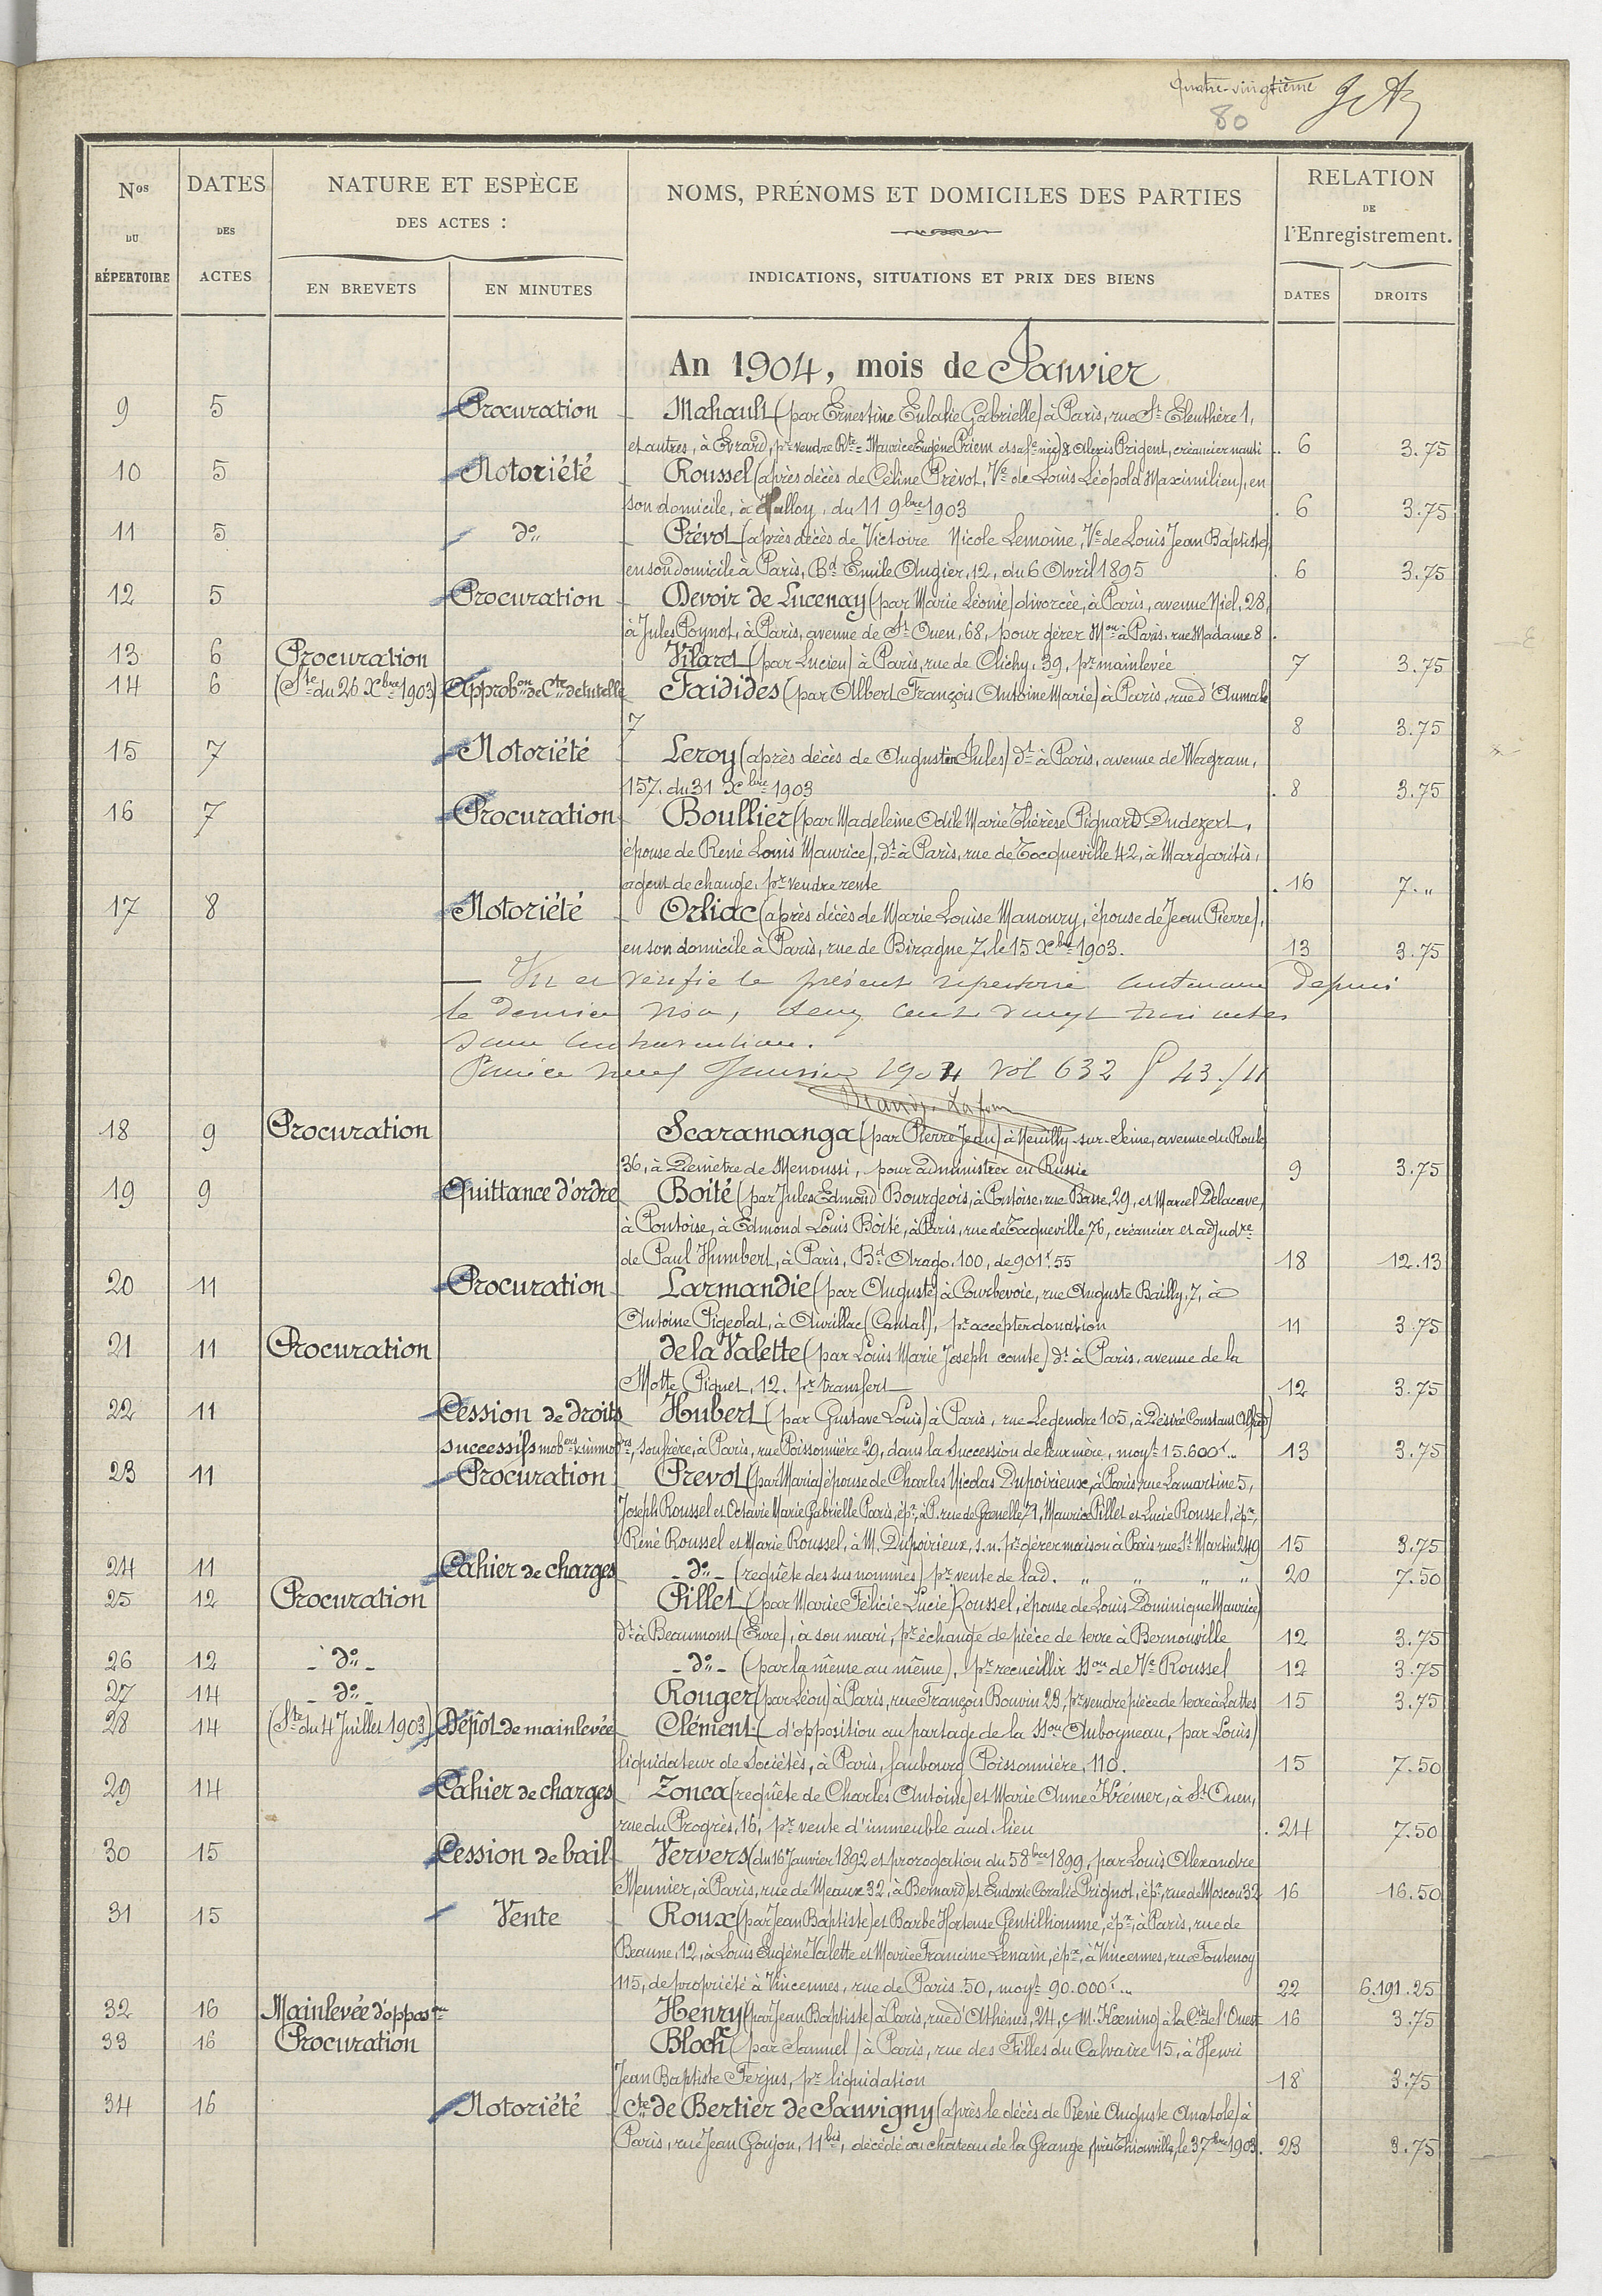 Quatre-vingtième
80
Nos DU RÉPERTOIRE
DATES DES ACTES
NATURE ET ESPÈCE DES ACTES :
EN BREVETS
EN MINUTES
NOMS, PRÉNOMS ET DOMICILES DES PARTIES
INDICATIONS, SITUATIONS ET PRIX DES BIENS
RELATION DE l'Enregistrement.
DATES
DROITS
An 1904, mois de Janvier
9 5 Procuration Mahault (par Ernestine Eulalie Gabrielle) à Paris, rue St Eleuthère 1,
et autres, à Evrard, pr vendre Rte = Maurice Eugène Priem et sa fe née) & Alexis Prigent, créancier nanti 6 3.75
10 5 Notoriété Roussel (après décès de Céline Prévot, Ve de Louis Léopold Maximilien), en
son domicile, à Halloy, du 11 9bre 1903 6 3.75
11 5 do Prévot (après décès de Victoire Nicole Lemoine, Ve de Louis Jean Baptiste),
en son domicile à Paris, Bd Emile Augier, 12, du 6 Avril 1895 6 3.75
12 5 Procuration Devoir de Lucenay (par Marie Léonie) divorcée, à Paris, avenue Niel, 28,
à Jules Poynot, à Paris, avenue de St Ouen, 68, pour gérer Mon à Paris, rue Madame 8.
13 6 Procuration Vilaret (par Lucien) à Paris, rue de Clichy, 39, pr mainlevée 7 3.75
14 6 (Ste du 26 Xbre 1903) Approbon de Cte de tutelle Faidides (par Albert François Antoine Marie) à Paris, rue d'Aumale
7 8 3.75
15 7 Notoriété Leroy (après décès de Augustin Jules) dt à Paris, avenue de Wagram,
157, du 31 Xbre 1903 8 3.75
16 7 Procuration Boullier (par Madeleine Odile Marie Thérèse Pignard Dudezert,
épouse de René Louis Maurice), dt à Paris, rue de Tocqueville 42, à Margaritis,
agent de change, pr vendre rente 16 7."
17 8 Notoriété Orliac (après décès de Marie Louise Manoury, épouse de Jean Pierre),
en son domicile à Paris, rue de Birague 7, le 15 Xbre 1903. 13 3.75
Vu et vérifié le présent répertoire contenant depuis
le dernier visa, deux cent vingt trois actes
sans contravention.
neuf Janvier 1904 vol 632 f 43./11
18 9 Procuration Scaramanga (par Pierre Jean) à Neuilly-sur-Seine, avenue du Roule
36, à Demètre de Menoussi, pour administrer en Russie 9 3.75
19 9 Quittance d'ordre Boité (par Jules Edmond Bourgeois, à Pontoise, rue Basse, 29, et Marcel Delacave,
à Pontoise, à Edmond Louis Boité, à Paris, rue de Tocqueville 76, créancier et adjudre
de Paul Humbert, à Paris, Bd Arago, 100, de 901f.55 18 12.13
20 11 Procuration Larmandie (par Auguste) à Courbevoie, rue Auguste Bailly, 7, à
Antoine Pigeolat, à Aurillac (Cantal), pr accepter donation 11 3.75
21 11 Procuration de la Valette (par Louis Marie Joseph comte) dt à Paris, avenue de la
Motte Piquet, 12. pr transfert 12 3.75
22 11 Cession de droits Hubert (par Gustave Louis) à Paris, rue Legendre 105, à Désiré Constant Alfred)
successifs mobers & immobers, son frère, à Paris, rue Poissonnière 29, dans la succession de leur mère, moyt 15.600f... 13 3.75
23 11 Procuration Prevot (par Maria) épouse de Charles Nicolas Dupoirieux, à Paris rue Lamartine 5,
Joseph Roussel et Octavie Marie Gabrielle Paris, épx, à P. rue de Grenelle 71, Maurice Pillet et Lucie Roussel, épx,
René Roussel et Marie Roussel, à M. Dupoirieux, s.n. pr gérer maison à Paris rue St Martin 249 15 3.75
24 11 Cahier de charges - do - (requête des sus nommés) pr vente de lad. " " " " 20 7.50
25 12 Procuration Pillet (par Marie Félicie Lucie Roussel, épouse de Louis Dominique Maurice)
dt à Beaumont (Eure), à son mari, pr échange de pièce de terre à Bernouville 12 3.75
26 12 - do - - do - (par la même au même), pr recueillir Sson de Ve Roussel 12 3.75
27 14 - do - Rouger (par Léon) à Paris, rue François Bouvin 23, pr vendre pièce de terre à Lattes 15 3.75
28 14 (Ste du 4 Juillet 1903) Dépôt de mainlevée Clément (d'opposition au partage de la Sson Auboyneau, par Louis)
liquidateur de Sociétés, à Paris, faubourg Poissonnière, 110. 15 7.50
29 14 Cahier de charges Zonca (requête de Charles Antoine) et Marie Anne Krémer, à St Ouen,
rue du Progrès, 16, pr vente d'immeuble aud. lieu 24 7.50
30 15 Cession de bail Ververs (du 16 Janvier 1892 et prorogation du 5 8bre 1899, par Louis Alexandre
Meunier, à Paris, rue de Meaux 32, à Bernard) et Eudoxie Coralie Prignot, épx, rue de Moscou 32 16 16.50
31 15 Vente Roux (par Jean Baptiste) et Barbe Hortense Gentilhomme, épx, à Paris, rue de
Beaune, 12, à Louis Eugène Valette et Marie Francine Lenain, épx, à Vincennes, rue Fontenoy
115, de propriété à Vincennes, rue de Paris. 50, moyt 90.000f... 22 6.191.25
32 16 Mainlevée d'opposon Henry (par Jean Baptiste) à Paris, rue d'Athènes, 24, c. M. Kœning à la Cie de l'Ouest 16 3.75
33 16 Procuration Bloch (par Samuel) à Paris, rue des Filles du Calvaire 15, à Henri
Jean Baptiste Ferjus, pr liquidation 18 3.75
34 16 Notoriété Cte de Bertier de Sauvigny (après le décès de René Auguste Anatole) à
Paris, rue Jean Goujon, 11bis, décédé au château de la Grange, près Thionville, le 3 7bre 1903. 23 3.75